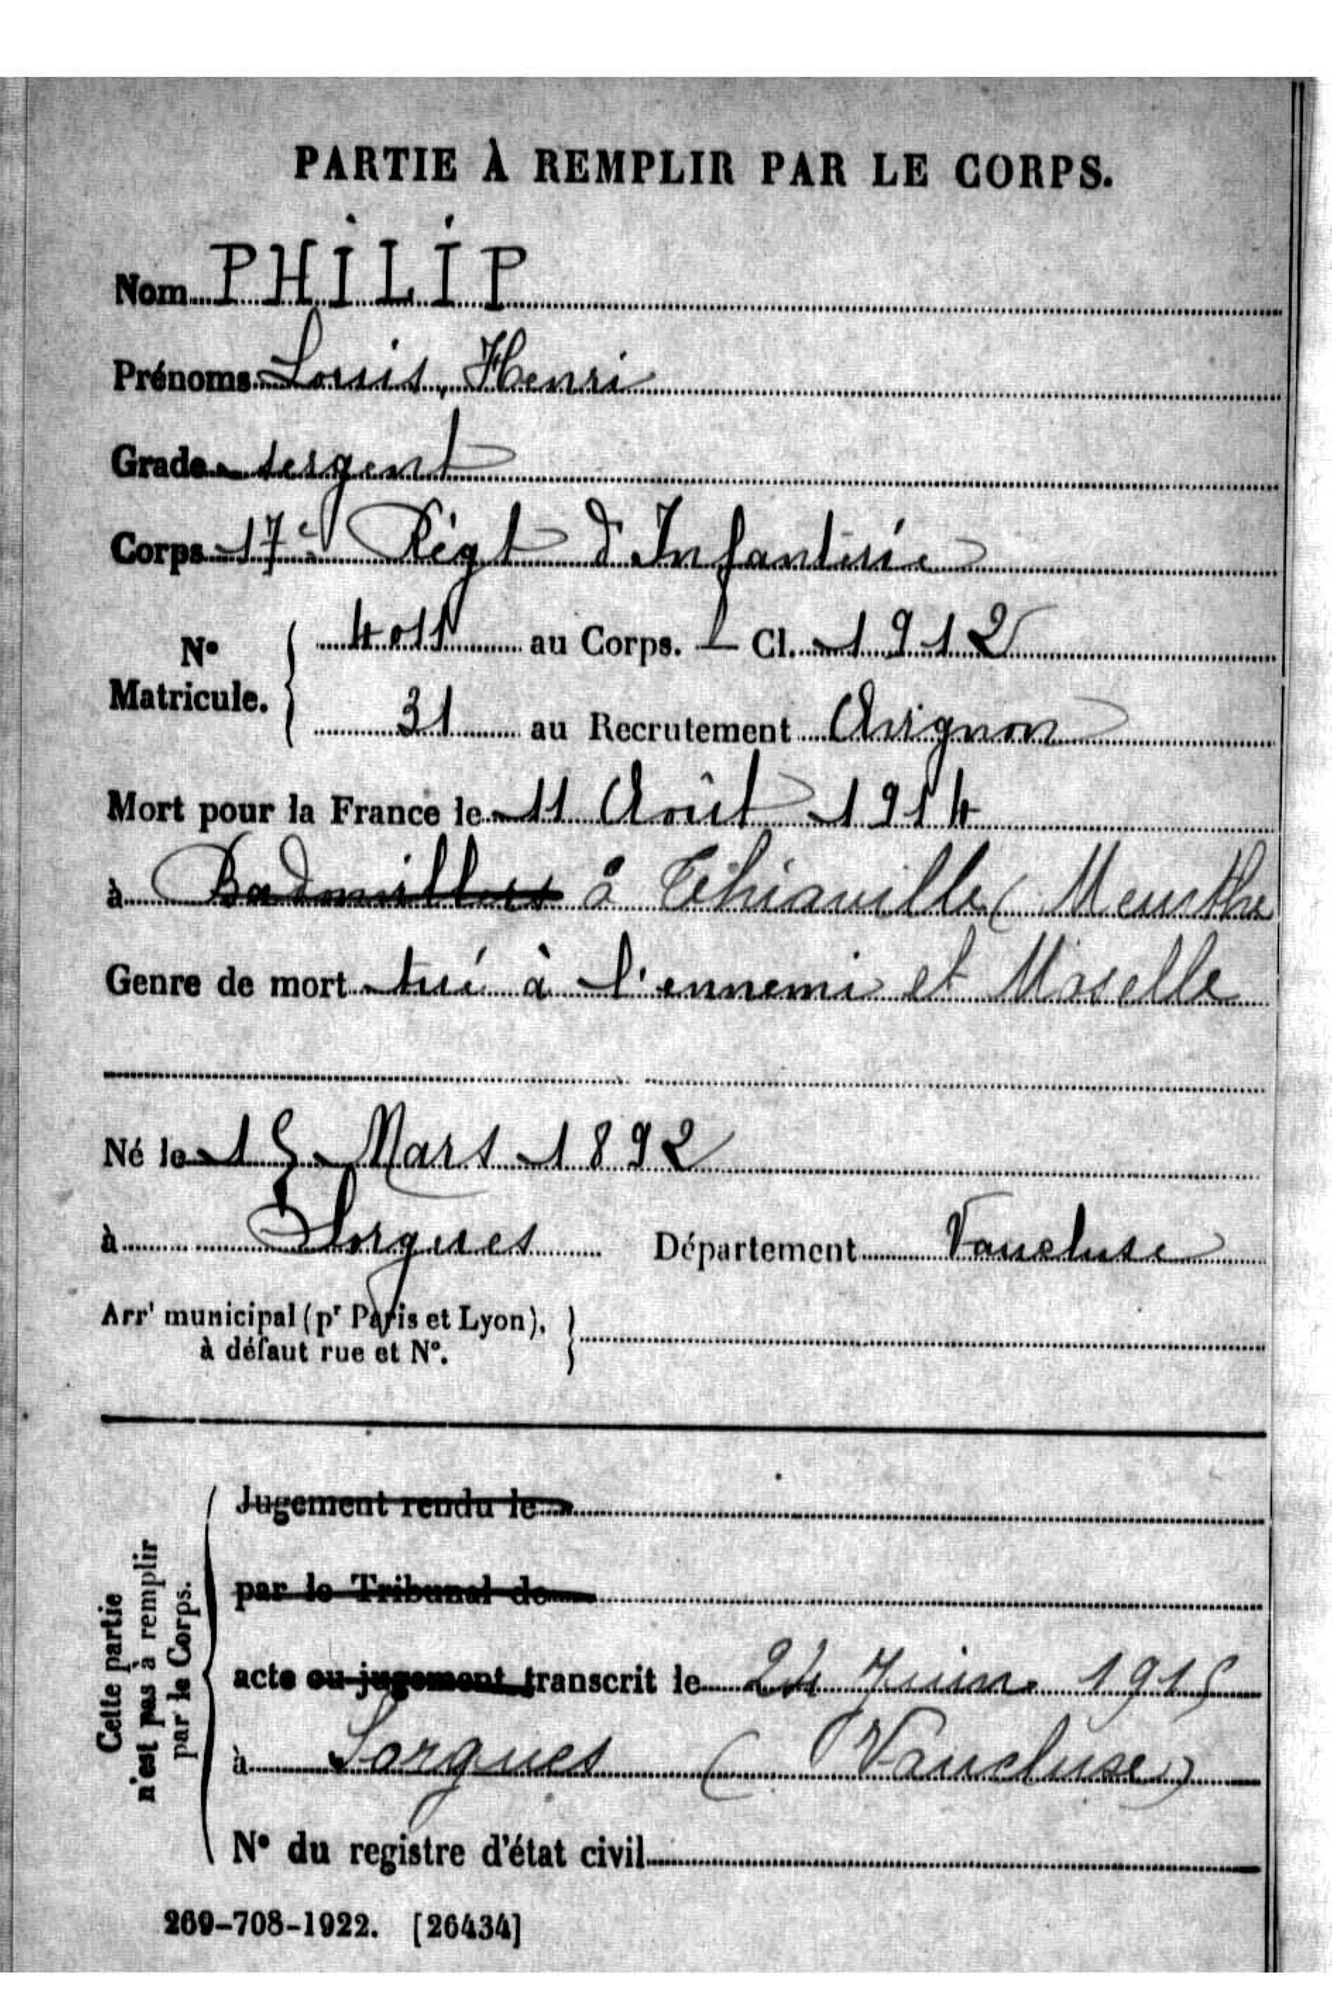 PARTIE À REMPLIR PAR LE CORPS.
Nom PHILIP
Prénoms Louis, Henri
Grade sergent
Corps 17e Régt d'Infanterie
N° Matricule. 4011 au Corps. — Cl. 1912
31 au Recrutement Avignon
Mort pour la France le 11 Août 1914
à Badonviller à Thiaville (Meurthe
Genre de mort tué à l'ennemi et Moselle
Né le 15 Mars 1892
à Sorgues Département Vaucluse
Arrt municipal (pr Paris et Lyon),
à défaut rue et N°.
Cette partie
n'est pas à remplir
par le Corps.
Jugement rendu le
par le Tribunal de
acte ou jugement transcrit le 24 Juin 1915
à Sorgues (Vaucluse)
N° du registre d'état civil
269-708-1922. [26434]